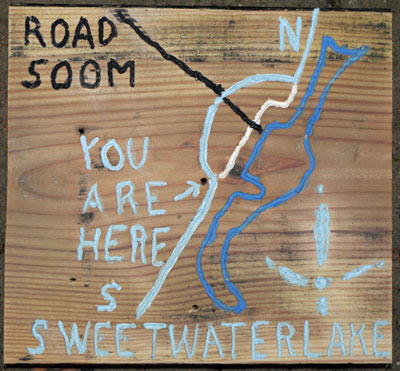 ROAD
500M
N
YOU
ARE
HERE
S
SWEETWATERLAKE